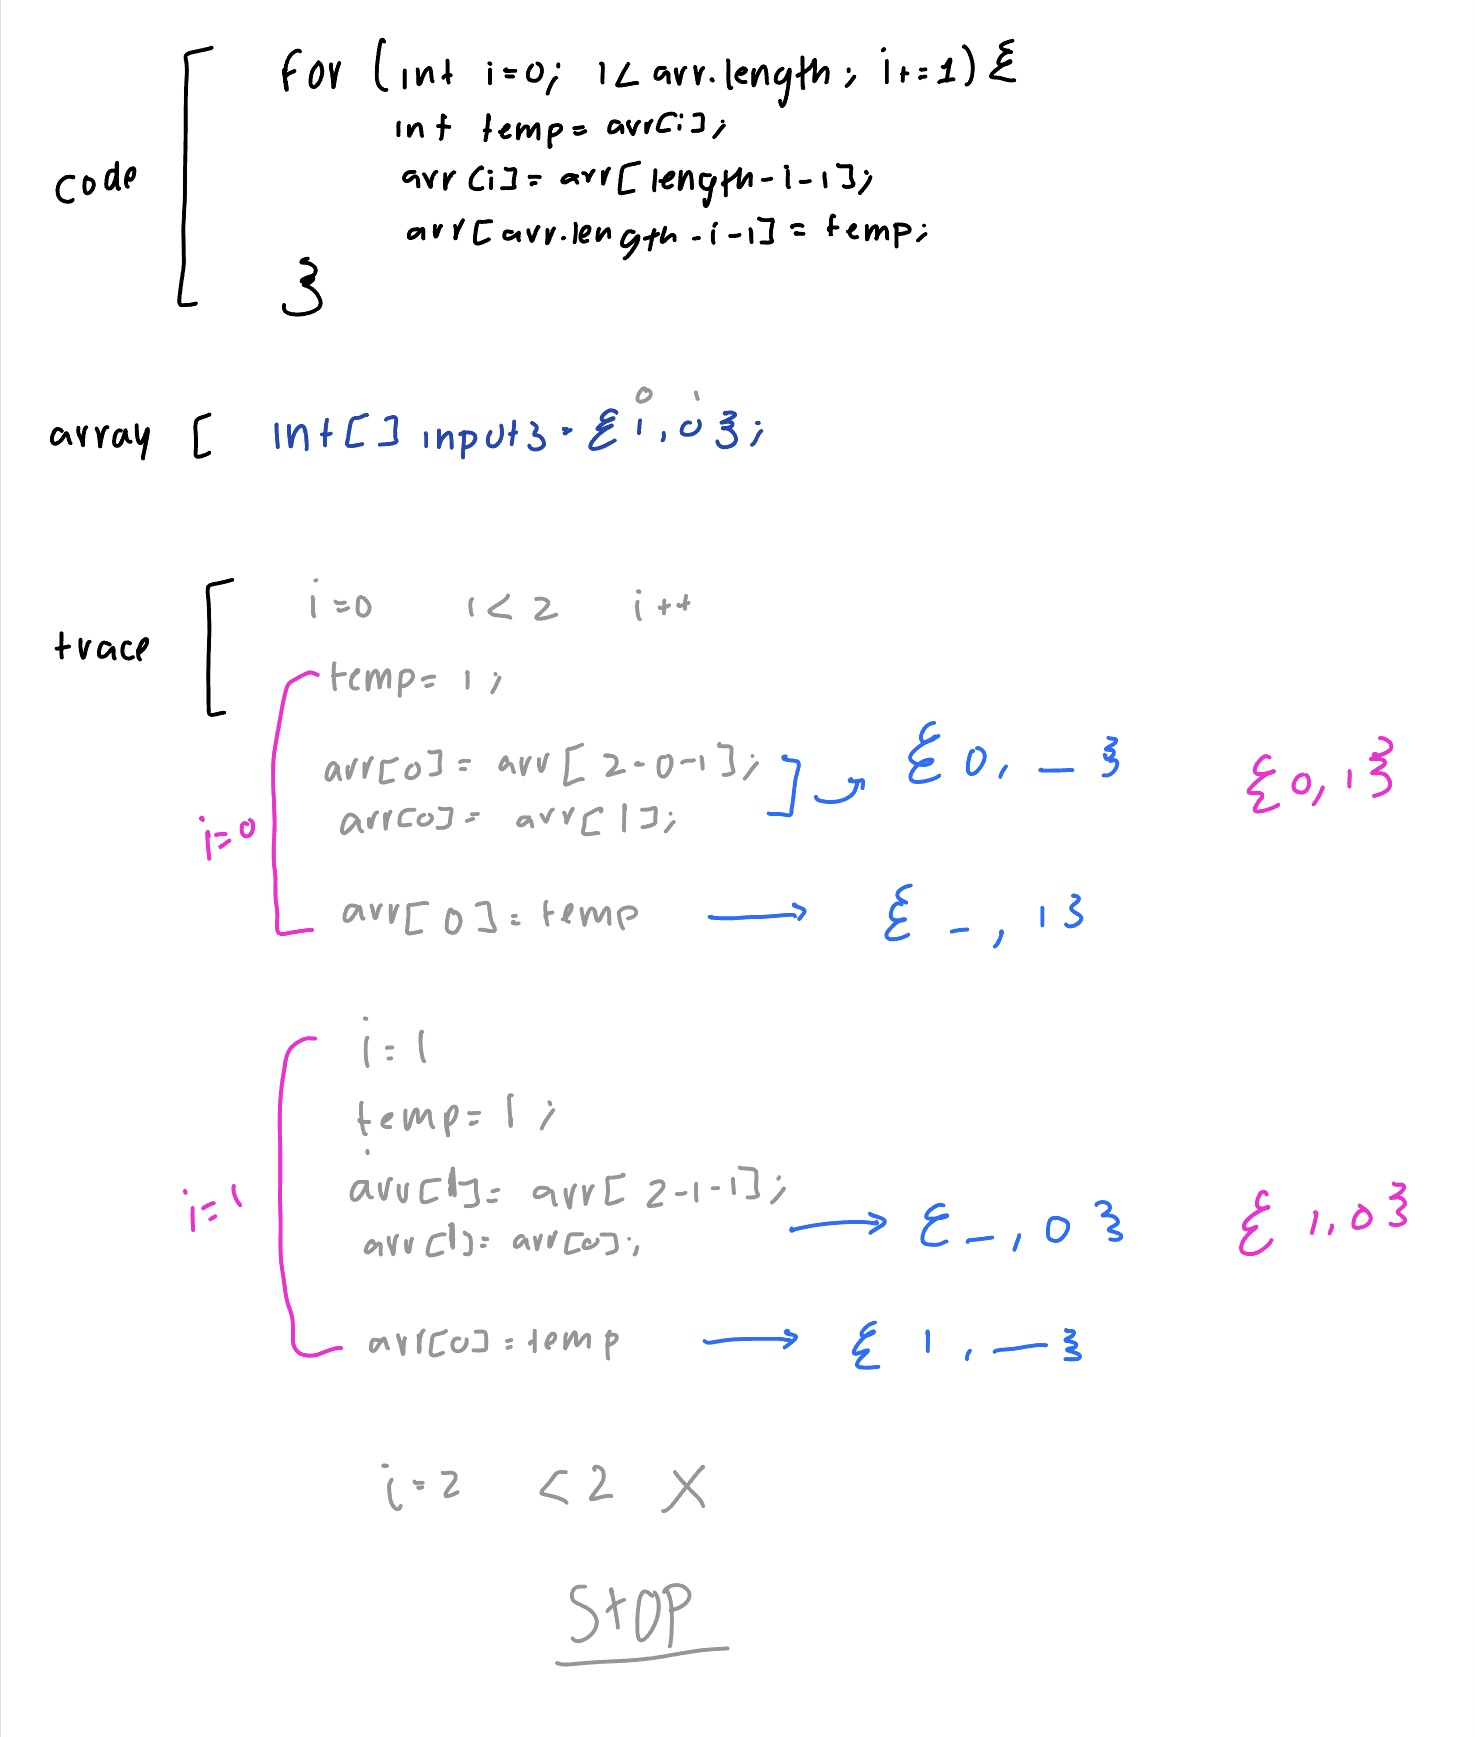 code
for (int i=0; i< arr.length; i+=1){
int temp= arr[i];
arr[i]= arr[length-i-1];
arr[arr.length-i-1] = temp;
}
0 1
array [ int[] input3 = {1,0};
trace
i=0 i<2 i++
temp= 1;
arr[0]= arr[2-0-1]; {0, _} {0,1}
i=0 arr[0]= arr[1];
arr[0]=temp → {_, 1}
i=1
temp=1;
i=1 arr[1]= arr[2-1-1];
arr[1]= arr[0]; → {_,0} {1,0}
arr[0]=temp → {1,_}
i=2 <2 X
STOP